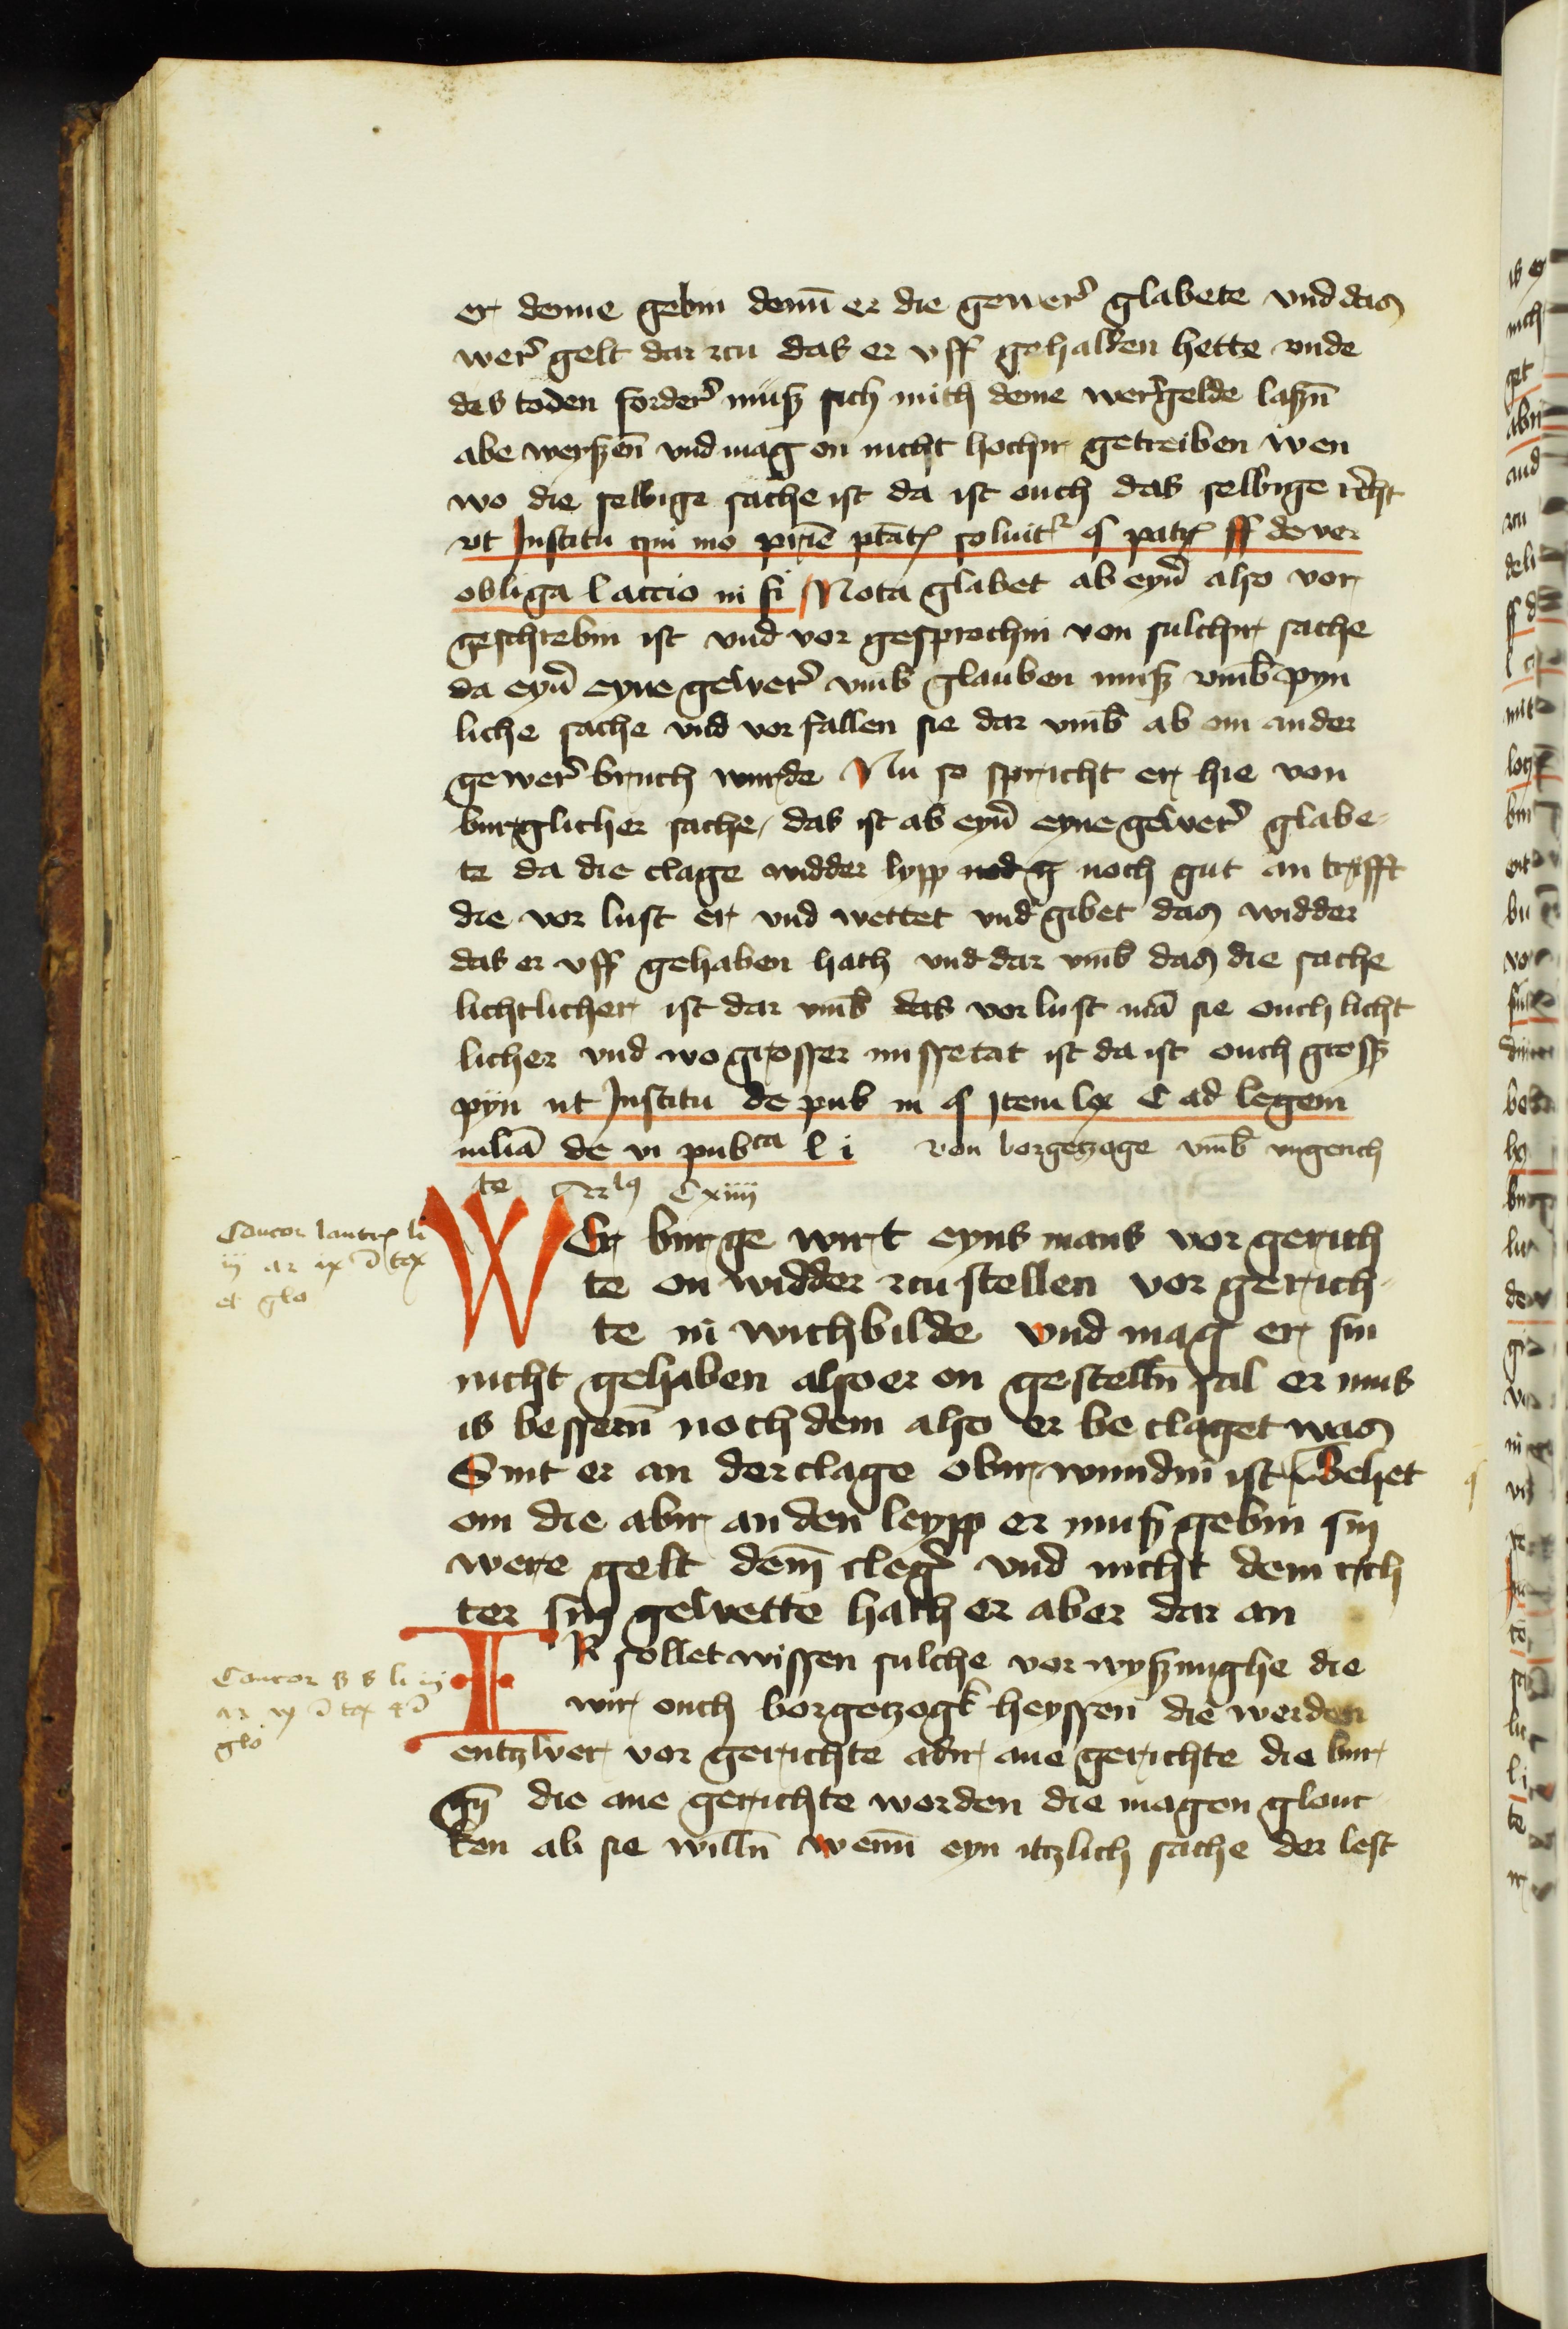 er deme gebin demē er die gewer̛ glabete vnd das
wer̛ gelt dar zcu das er vff gehalden hette vnde
des toden forder̛ müß sich mith deme wer̛gelde laßn̄
abe weyßen̄ vnd mag on nicht hochir getreiben wen
wo die selbige sache ist da ist ouch das selbige recht
vt Institu qui mo pr̄ie p̄tat͛ soluitr § pat͛ ff de ver
obliga l accio in fi Nota glabet ab eyn̄ also vor
geschrebin ist vnd vor gesprochin von sulchir sache
da eyn̄ eyne gewer̛ vmb̄ glauben muß vmb̄ pyn
liche sache vnd vor fallen sie dar vmb̄ ab om ander
gewer̛ bruch wurde Nu so spricht er hie von
burglicher sache / das ist ab eyn̄ eyne gewer̛ glabe-
te da die clage widder lypp noch gut an trifft
die vor lust er vnd wettet vnd gibet das widder
das er vff gehaben hath vnd dar vmb̄ das die sache
lichtlicher ist dar vmb̄ das vor lust mā sie ouch licht
licher vnd wo grosser missetat ist da ist ouch groß
pyn ut Institu de pub in § Item lex C ad legem
iuliā de vi pubca l i von borgetzoge vmb̄ vngerich
te Ar̄lus Cxiiii
WEr burge wirt eyns mans vor gerich
te on widder zcu stellen vor gerich-
te in wichbilde vnd mag er sin
nicht gehaben also er on gestelln̄ sal er mus
is bessern̄ noch dem also er be claget was
Sint er an der clage obir wundin ist Gehet
om die abir an den leypp er muß gebin sin
were gelt dem̄ cleg̛ vnd nicht dem rich
ter sin gewette hath er aber dar an
IR sollet wissen sulche vor wyßunghe die
wir ouch borgetzogk heyssen die werden
entzwer vor gerichte adir ane gerichte die bur
gn̄ die ane gerichte worden die magen glouc
ken ab sie willn̄ wenn̄ eyn itzlich sache der lest
Concor lantr͛ li
iij ar ix ī tex
et glo
Concor ß s li iij
ar ix ī tex et ī
glo